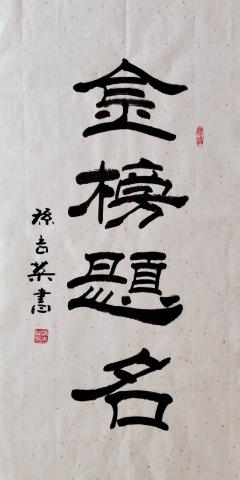 金榜題名
孫吉英書